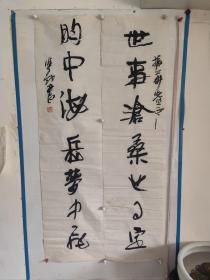 世事滄桑心事定
胸中海岳夢中飛